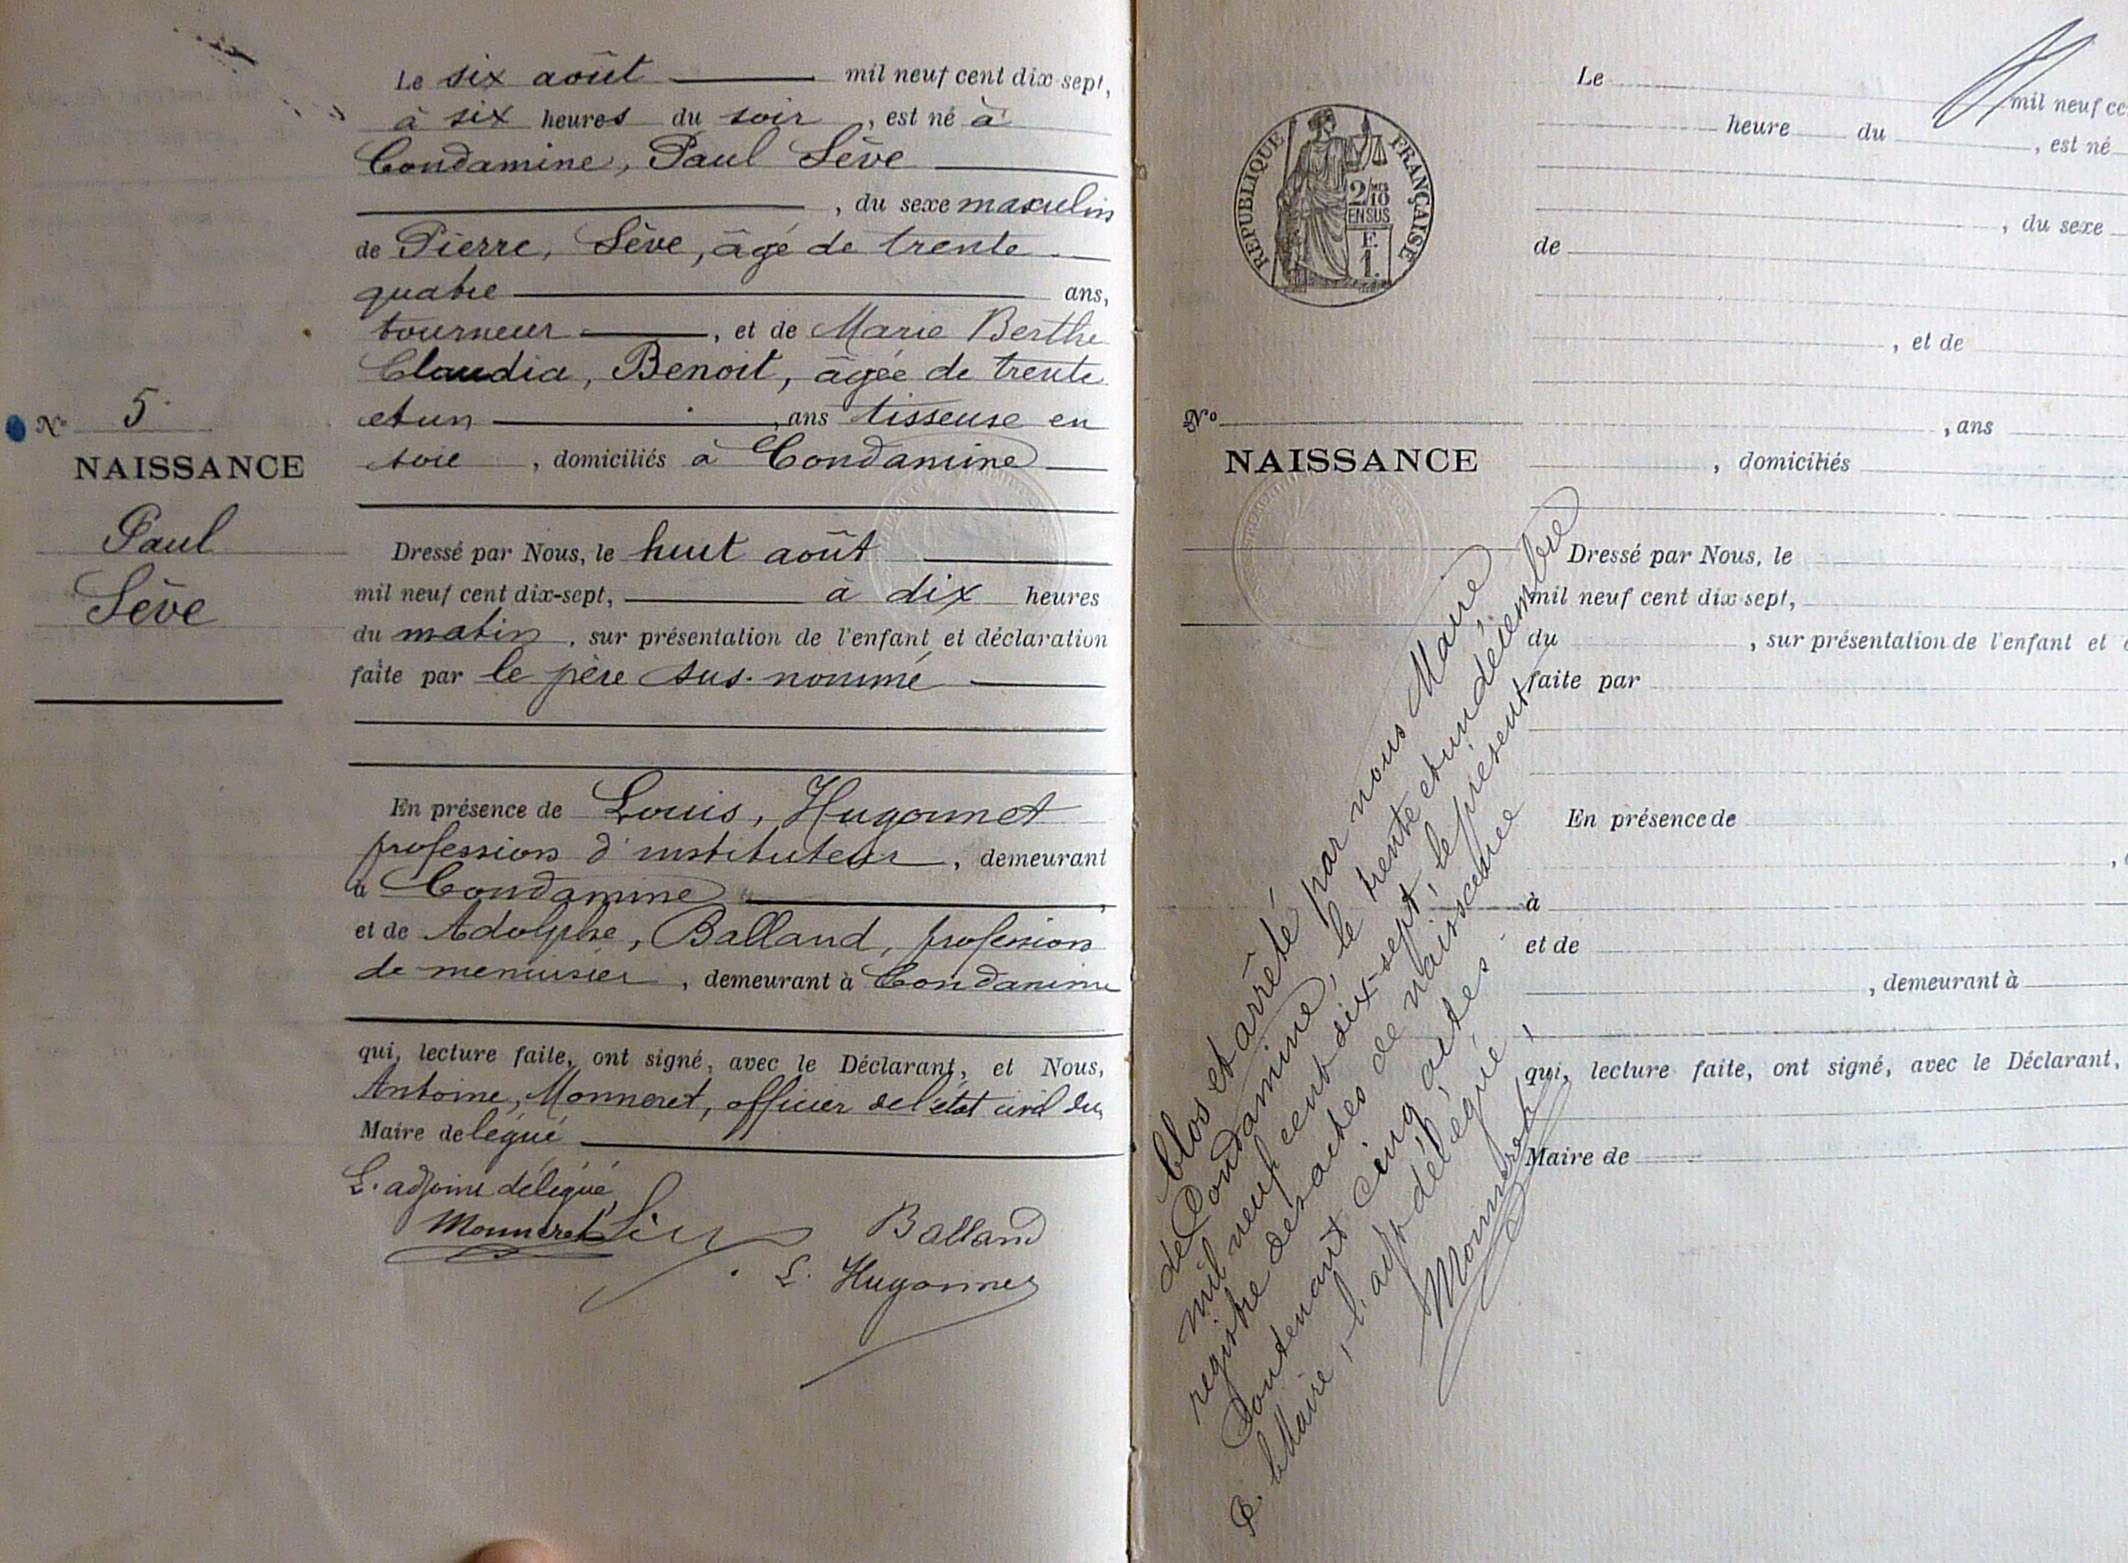 Le six août mil neuf cent dix-sept,
à six heures du soir, est né à
Condamine, Paul Sève
, du sexe masculin
de Pierre, Sève, âgé de trente
quatre ans,
tourneur, et de Marie Berthe
Claudia, Benoit, âgée de trente
et un, ans tisseuse en
soie, domiciliés à Condamine
No 5
NAISSANCE
Paul
Sève
Dressé par Nous, le huit août
mil neuf cent dix-sept, à dix heures
du matin, sur présentation de l'enfant et déclaration
faite par le père sus-nommé
En présence de Louis, Hugonnet
profession d'instituteur, demeurant
à Condamine,
et de Adolphe, Balland, profession
de menuisier, demeurant à Condamine
qui, lecture faite, ont signé, avec le Déclarant, et Nous,
Antoine, Monneret, officier de l'état civil du
Maire délégué
L. adjoint délégué
Monneret Sève Balland
L. Hugonnet
Le mil neuf ce
heure du , est né
, du sexe
de
, et de
, ans
, domiciliés
RÉPUBLIQUE FRANÇAISE
2/10
EN SUS
F.
1.
No
NAISSANCE
Dressé par Nous, le
mil neuf cent dix sept,
du , sur présentation de l'enfant et
faite par
En présence de
à
et de
, demeurant à
qui, lecture faite, ont signé, avec le Déclarant,
Maire de
Clos et arrêté par nous Maire
de Condamine, le trente et un décembre
mil neuf cent dix-sept, le présent
registre des actes de naissance
Contenant cinq actes
P. le Maire, l'adjt délégué,
Monneret